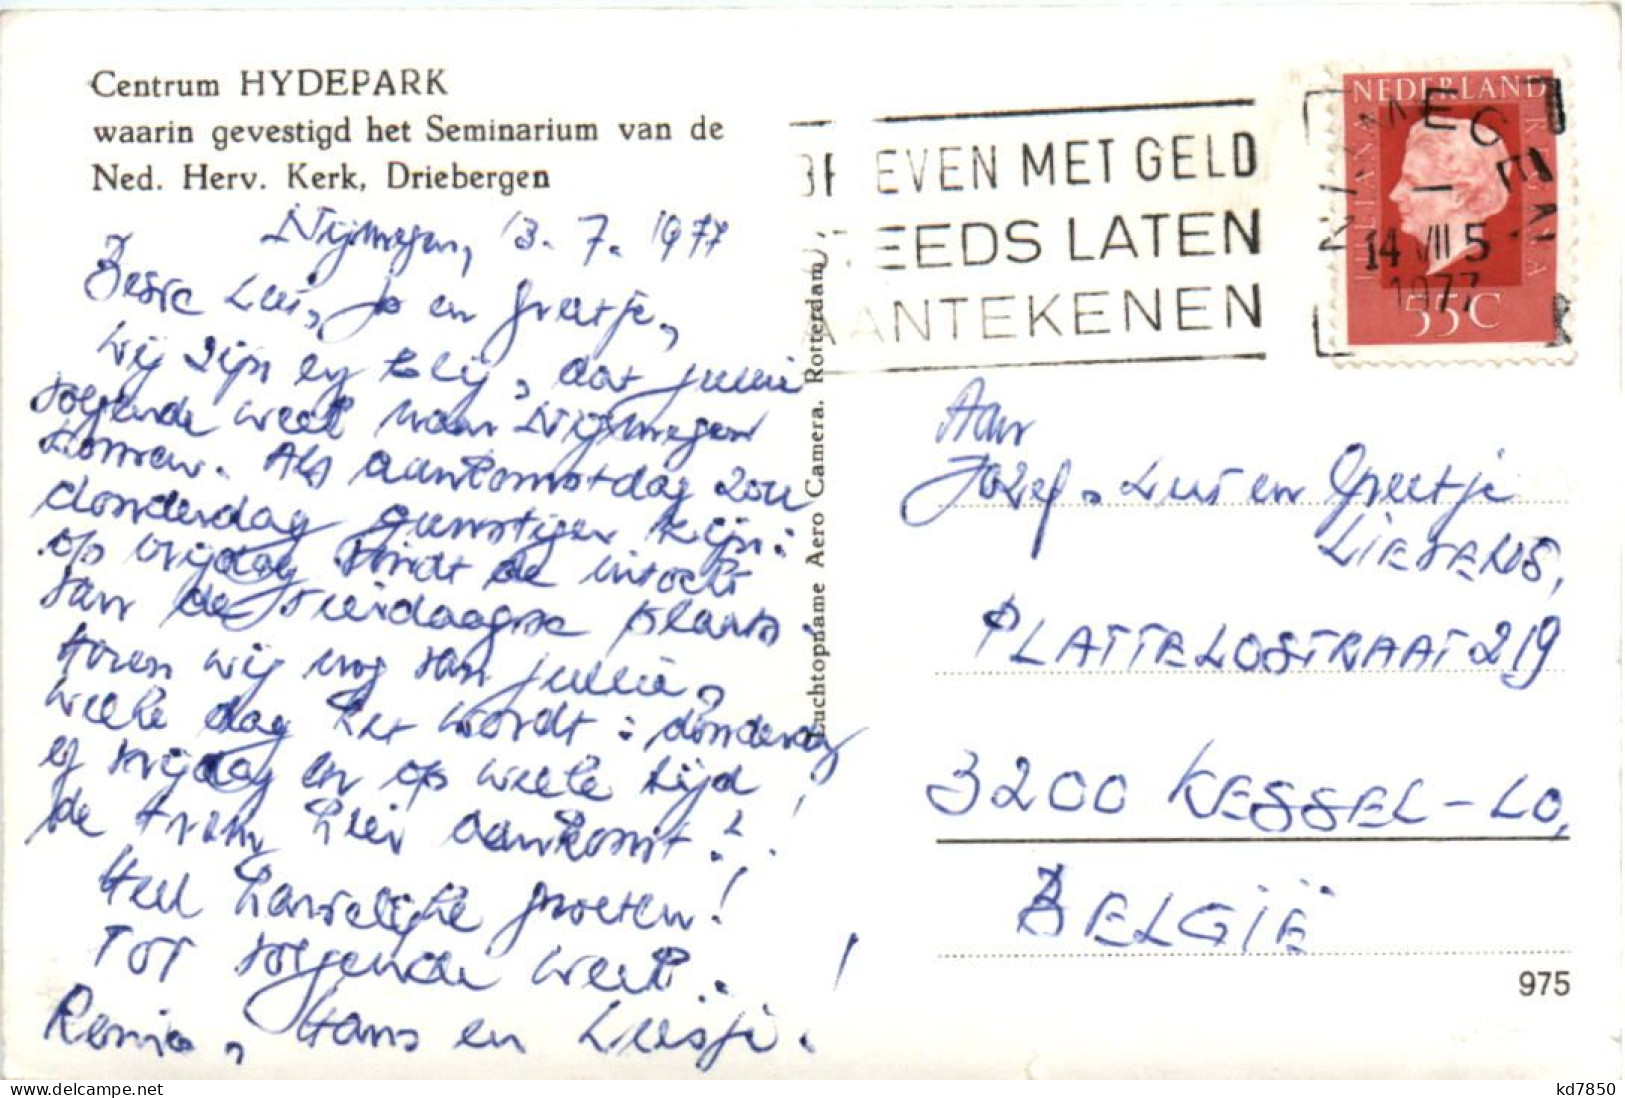 Centrum HYDEPARK
waarin gevestigd het Seminarium van de
Ned. Herv. Kerk, Driebergen
Nijmegen, 13.7.1977
Beste Lui, Jo en Greetje,
Wij zijn erg blij, dat jullie
volgende week naar Nijmegen
komen. Als aankomstdag zou
donderdag gunstiger zijn:
op vrijdag vindt de intocht
van de vierdaagse plaats!
Horen wij nog van jullie,
welke dag het wordt: donderdag
of vrijdag en op welke tijd
de trein hier aankomt?!
Heel hartelijke groeten!
Tot volgende week!
Hans en Liesje.
Luchtopname Aero Camera. Rotterdam
BR EVEN MET GELD
STEEDS LATEN
AANTEKENEN
NEDERLAND
JULIANA REGINA
55 C
NIJMEGEN
14 VII 5
1977
Aan
Jozef, Lui en Greetje
LIESENS,
PLATTELOSTRAAT 219
3200 KESSEL-LO,
BELGIË
975
kd7850